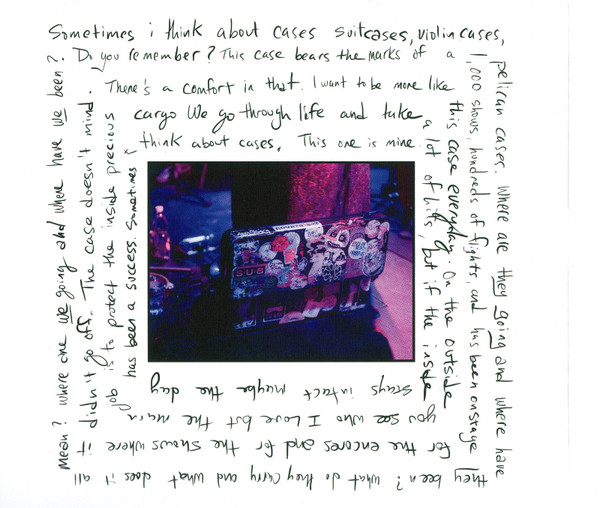 Sometimes i think about cases suitcases, violin cases,
pelican cases. Where are they going and where have
they been? what do they carry and what does it all
mean? where are we going and where have we been?
Do you remember? This case bears the marks of a
1,000 shows, hundreds of flights, and has been onstage
for the encores and for the shows where it
didn't go off. The case doesn't mind.
There's a comfort in that. I want to be more like
this case everyday. On the outside
you see who I love but the main
job is to protect the inside precious
cargo We go through life and take
a lot of hits, but if the inside
stays intact maybe the day
has been a success. Sometimes i
think about cases. This one is mine